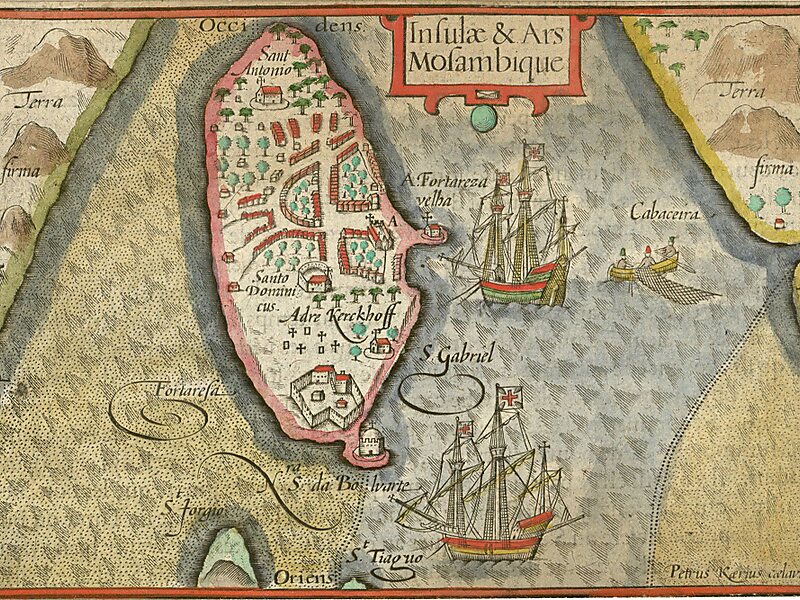 Occidens
Insulæ & Ars
Mosambique
Sant
Antonio
Terra
firma
Terra
firma
A. Fortareza
velha
A
Cabaceira
Santo
Domini
cus.
Adre Kerckhoff
S. Gabriel
Fortaresa
N.ra S. da Boulvarte
S.t Jorgio
S.t Tiaguo
Oriens
Petrus Kærius cælav